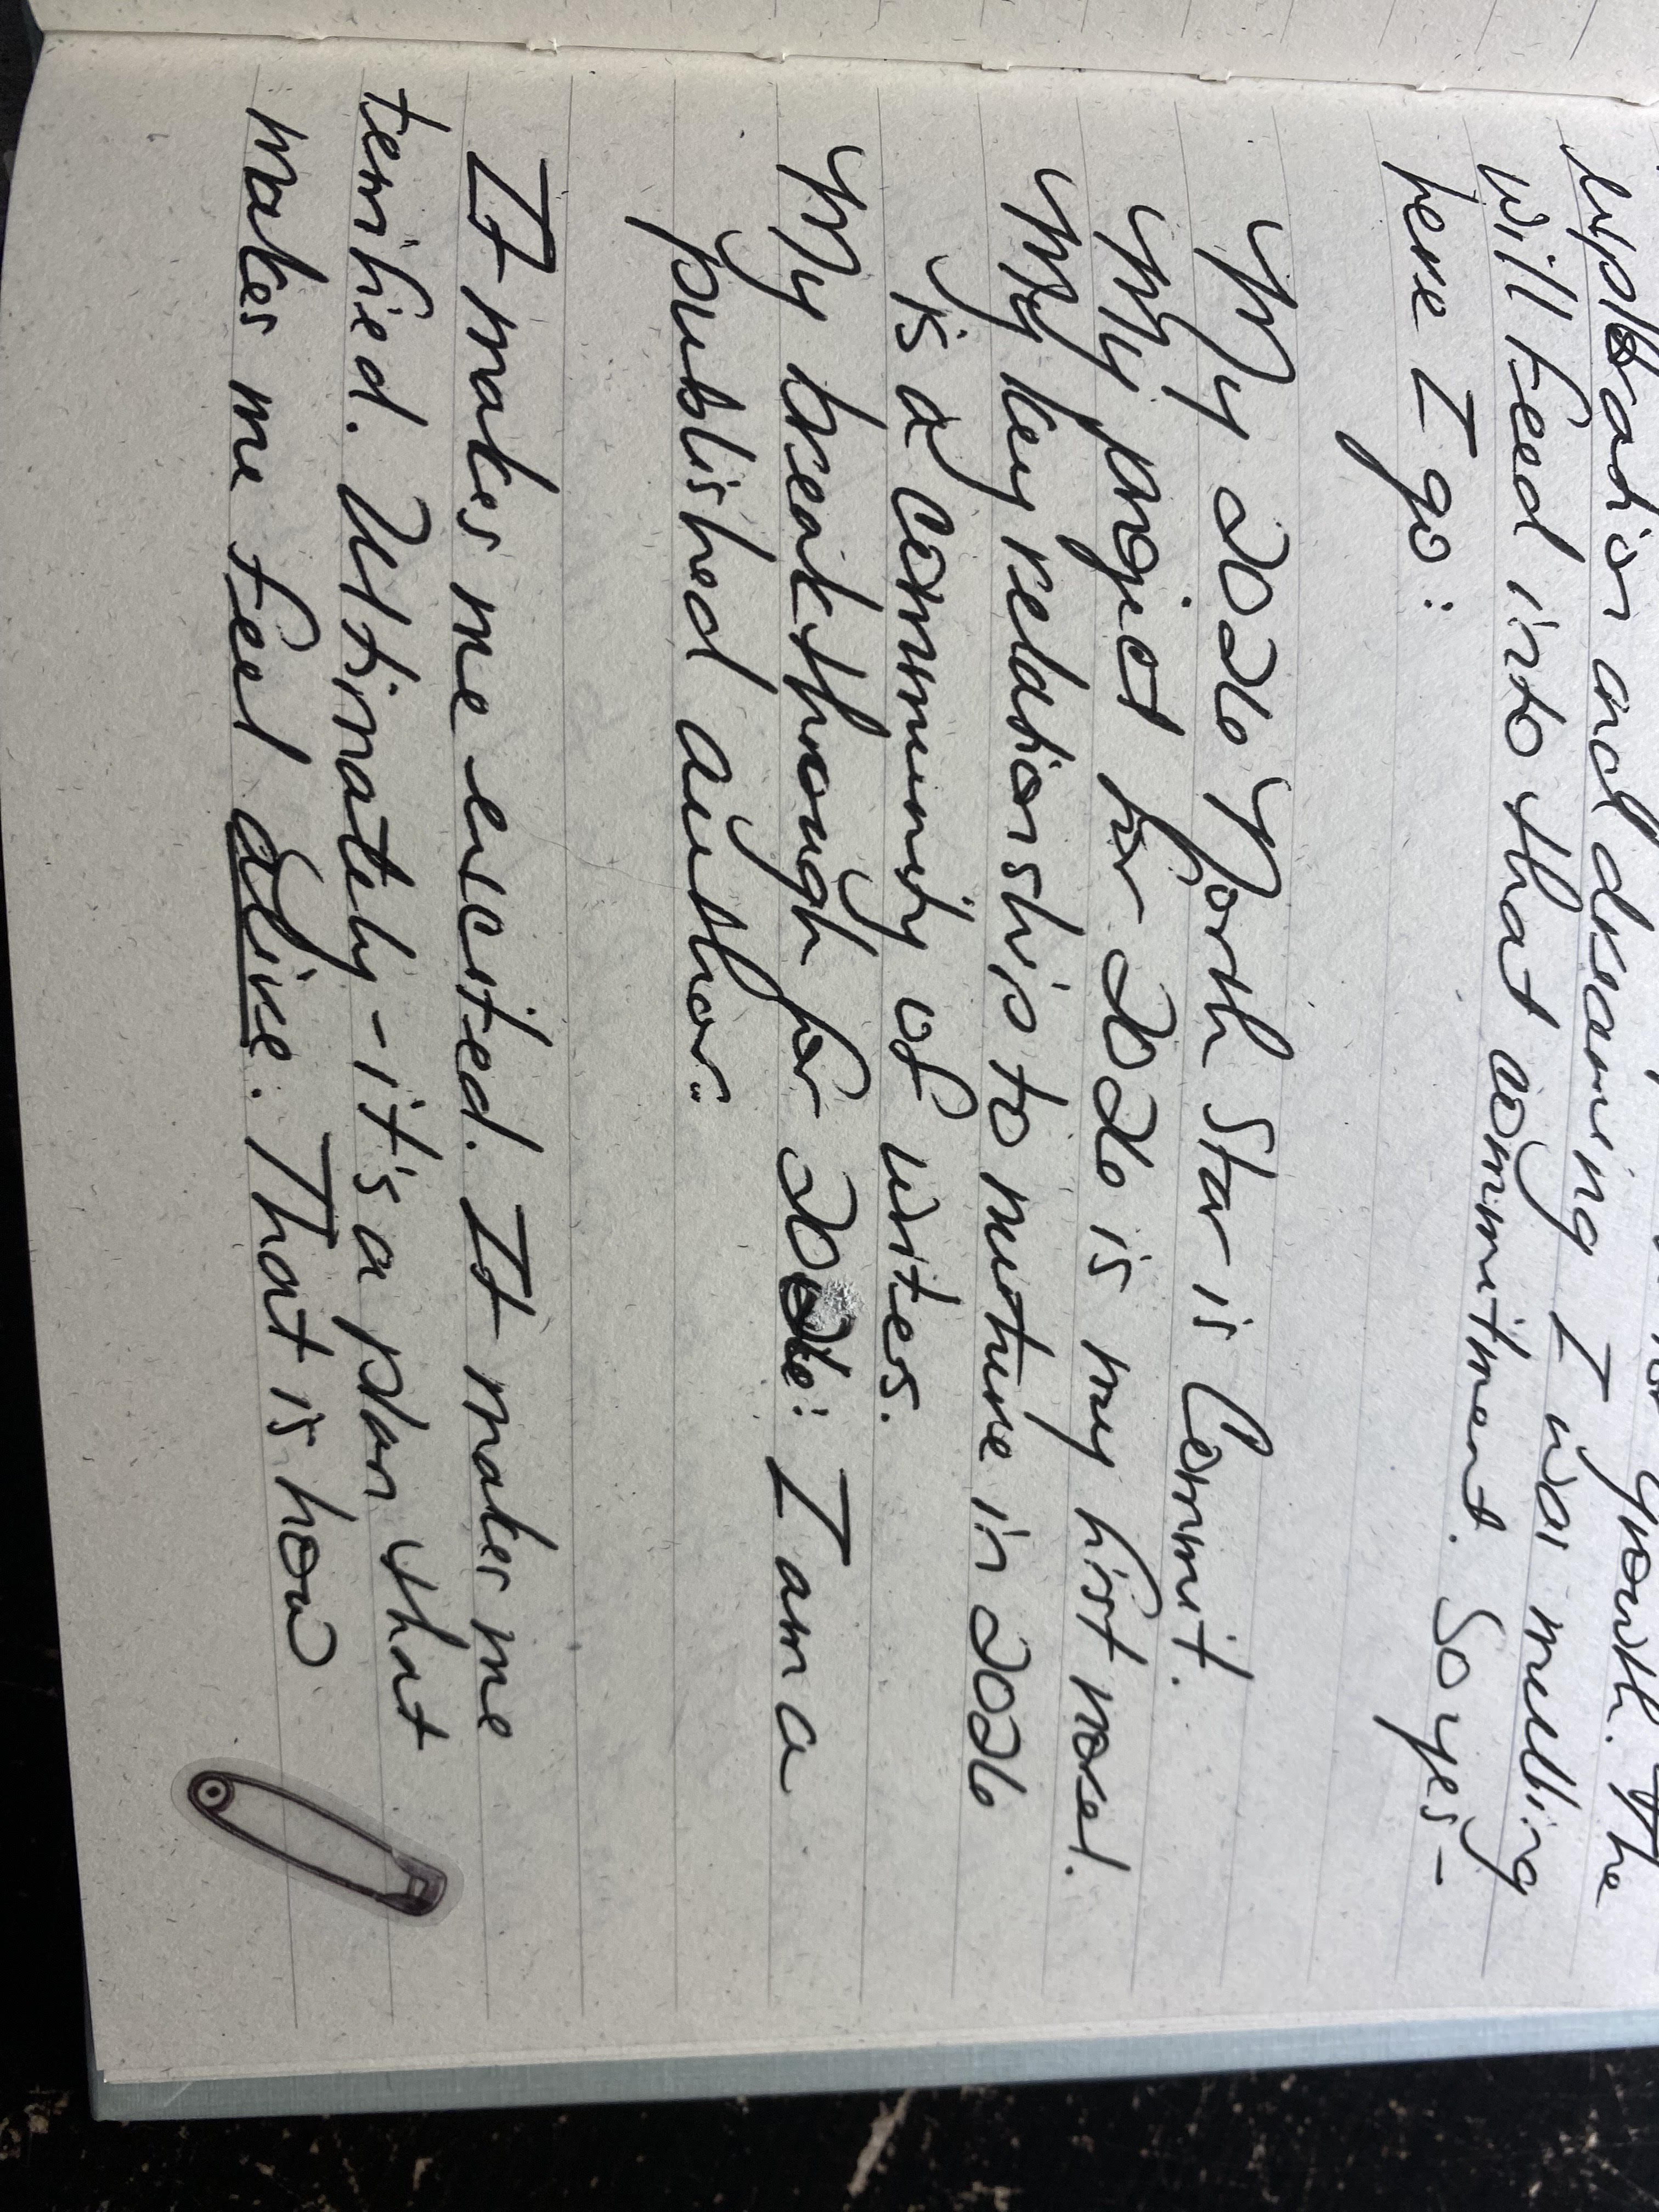 exploration and dreaming I was mulling
will feed into that commitment. So yes -
here I go:
My 2026 North Star is Commit.
My project for 2026 is my first novel.
My key relationship to nurture in 2026
is a community of writes.
My breakthrough for 2026: I am a
published author.
It makes me excited. It makes me
terrified. Ultimately - it's a plan that
makes me feel alive. That is how